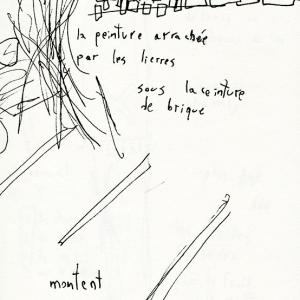 la peinture arrachée
par les lierres
sous la ceinture
de brique
montent